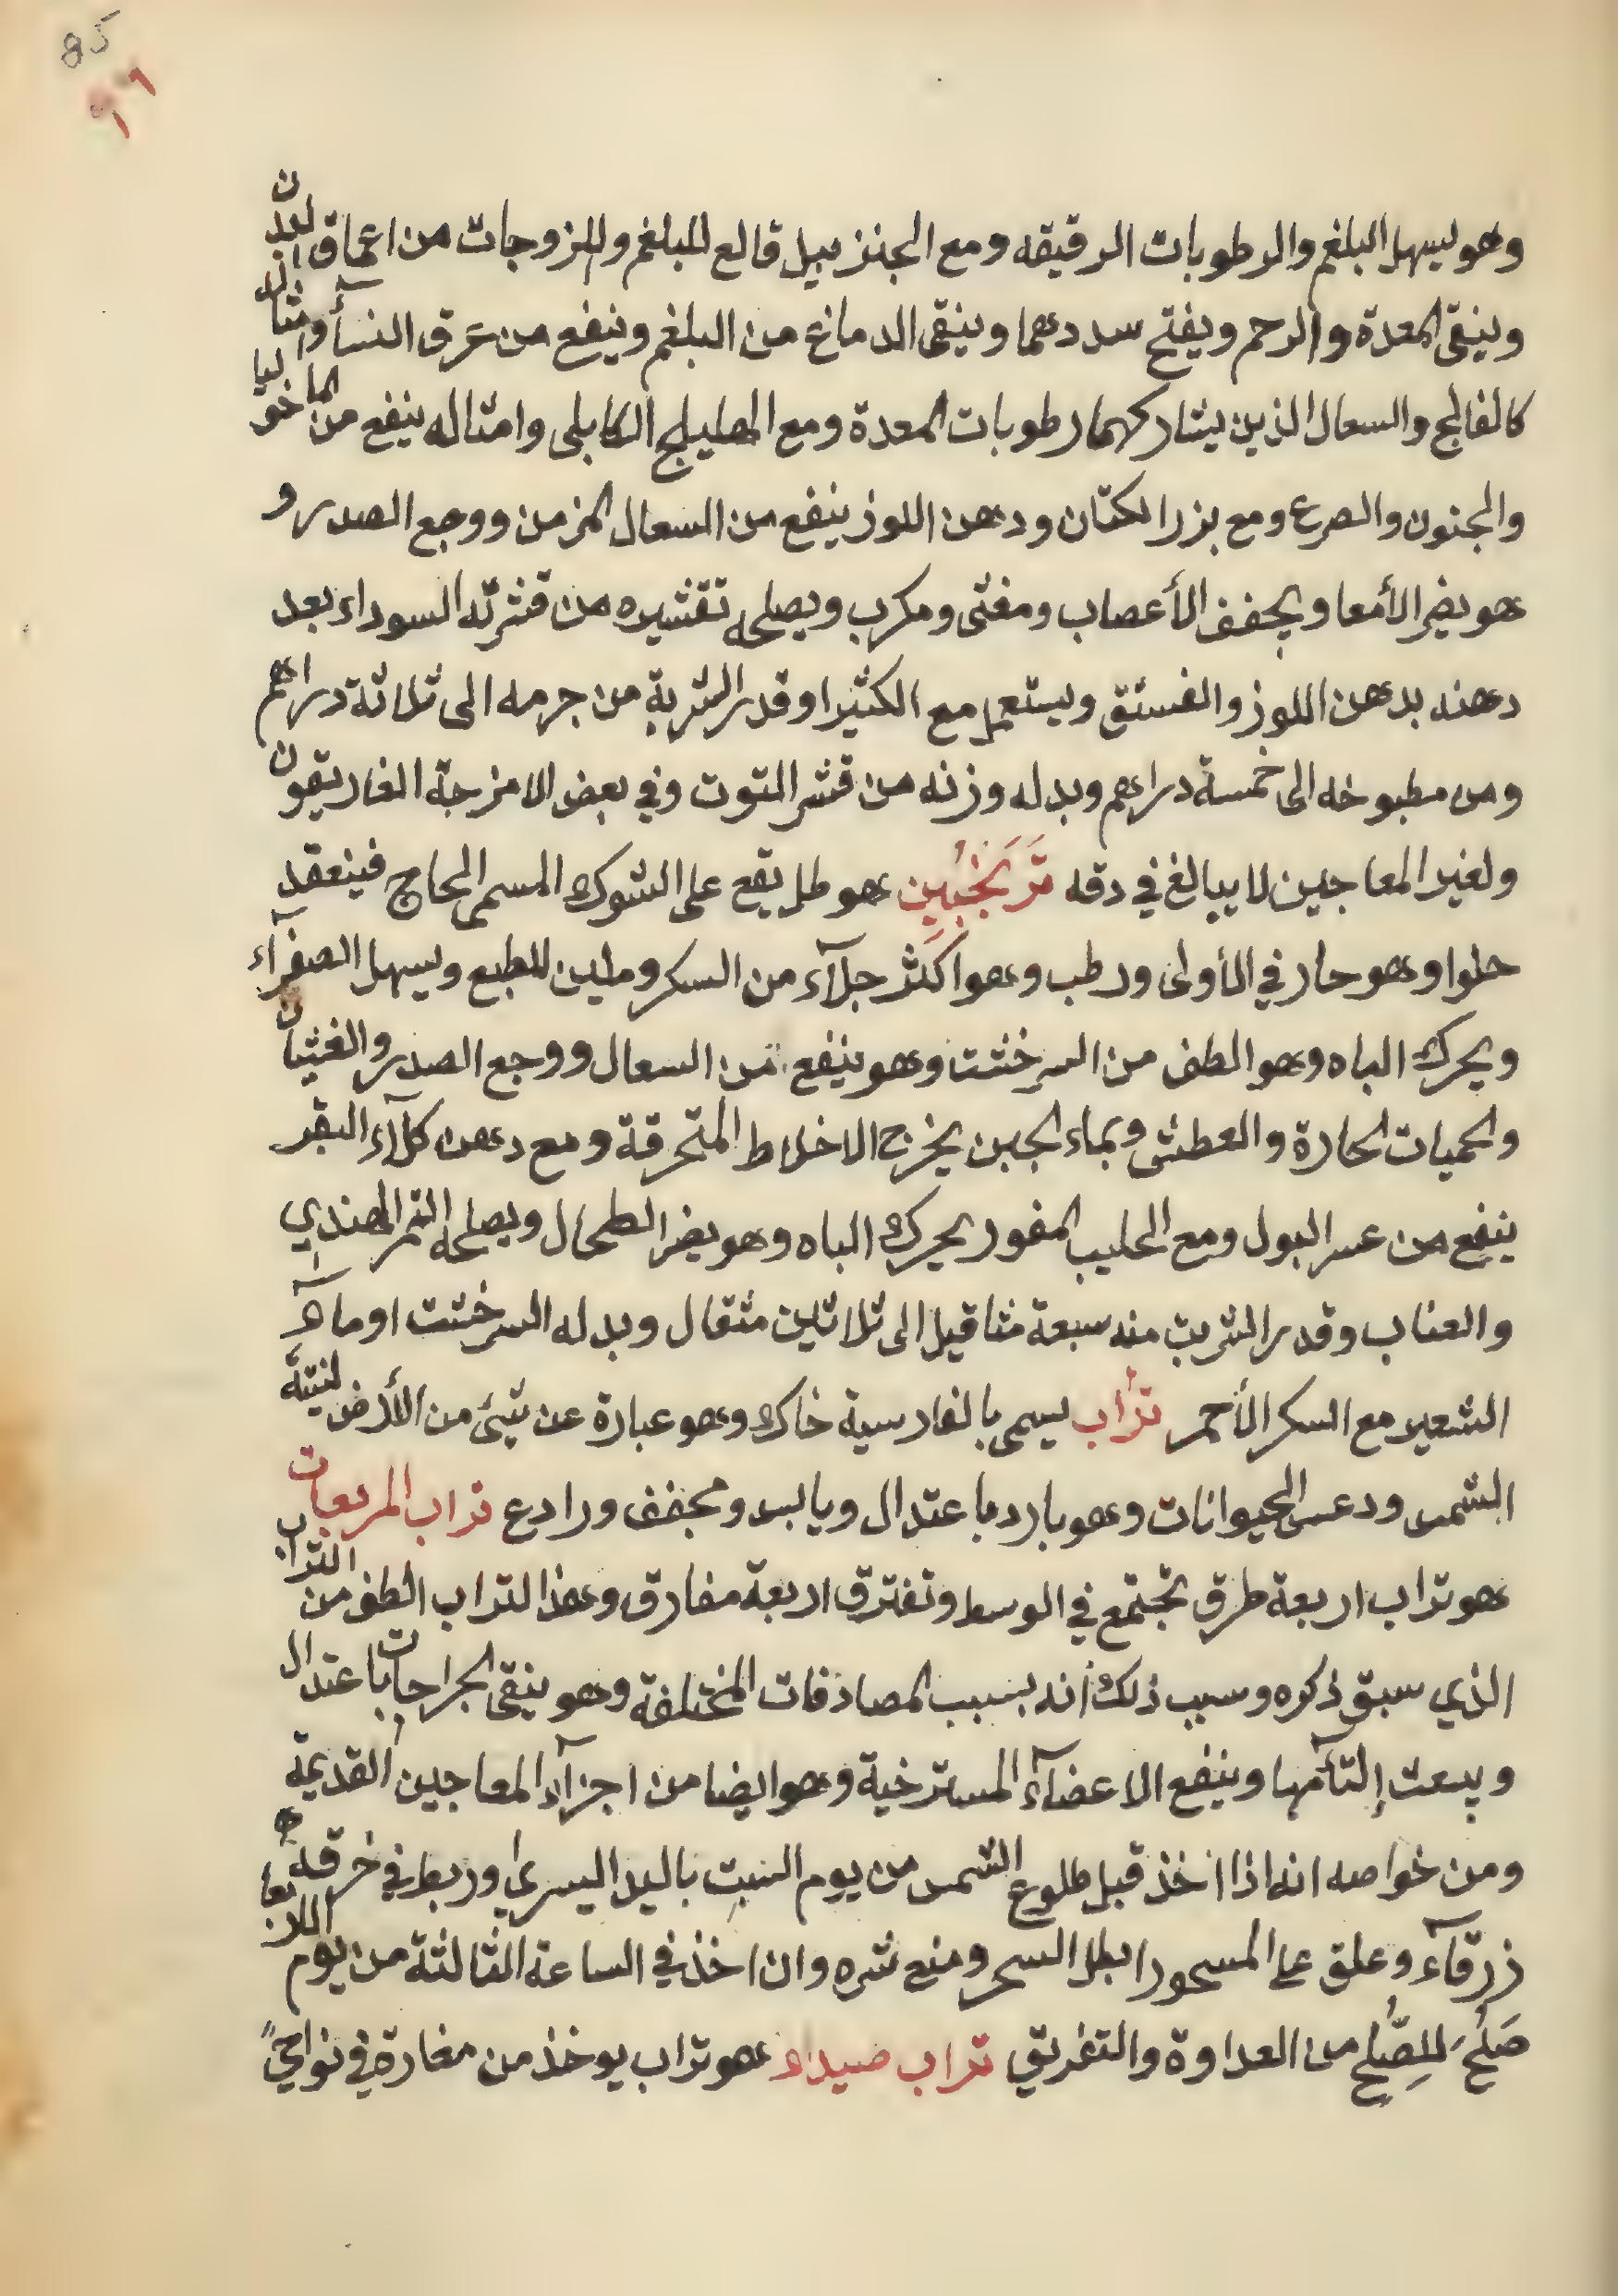 85
٩٦
وهو يسهل البلغم والرطوبات الرقيقه ومع الجنزبيل قالع للبلغم وللزوجات من اعماق البدن
وينقى المعدة والرحم ويفتح سددهما وينقى الدماغ من البلغم وينفع من عرق النسأ وامثاله
كالفالج والسعال الذين يشاركهما رطوبات المعدة ومع الهليلج الكابلى وامثاله ينفع من الماخوليا
والجنون والصرع ومع بزر الكتان ودهن اللوز ينفع من السعال المزمن ووجع الصدر و
هو يضر الأمعا ويجفف الأعصاب ومغثى ومكرب ويصلحه تقشيره من قشرته السوداء بعد
دهنه بدهن اللوز والفستق ويستعمل مع الكثيرا وقدر الشربة من جرمه الى ثلاثة دراهم
ومن مطبوخه الى خمسة دراهم وبدله وزنه من قشر التوت وفي بعض الامزجة الغاريقون
ولغير المعاجين لا يبالغ في دقه تَرَنجُبِين هو طل يقع على الشوك المسمى الحاج فينعقد
حلوا وهو حار في الأولى ورطب وهو اكثر جلآء من السكر وملين للطبع ويسهل الصفرآء
ويحرك الباه وهو الطف من السرخشت وهو ينفع من السعال ووجع الصدر والغثيان
والحميات الحارة والعطش وبماء الجبن يخرج الاخلاط المتحرقة ومع دهن كلآء البقر
ينفع من عسر البول ومع الحليب المفور يحرك الباه وهو يضر الطحال ويصلحه التمر الهندي
والعناب وقدر الشربت منه سبعة مثاقيل الى ثلاثين مثقال وبدله السرخشت او مآء
الشعير مع السكر الأحمر تراب يسمى بالفارسية خاك وهو عبارة عن شئ من الأرض لنيته
الشمس ودعس الحيوانات وهو بارد باعتدال ويابس ومجفف ورادع تراب المربعات
هو تراب اربعة طرق تجتمع في الوسط وتفترق اربعة مفارق وهذا التراب الطف من التراب
الذي سبق ذكره وسبب ذلك انه بسبب المصادفات المختلفة وهو ينقى الجراحات باعتدال
ويبعث إلتآمها وينفع الاعضآء المسترخية وهو ايضا من اجزآء المعاجين القديمة
ومن خواصه انه اذا اخذ قبل طلوع الشمس من يوم السبت باليد اليسرى وربط في خرقة
زرقآء وعلق على المسحور ابطل السحر ومنع شره وان اخذ في الساعة الثالثة من يوم الاربعا
صَلُحَ للصُّلح من العداوة والتفريق تراب صيداء هو تراب يوخذ من مغارة في نواحي